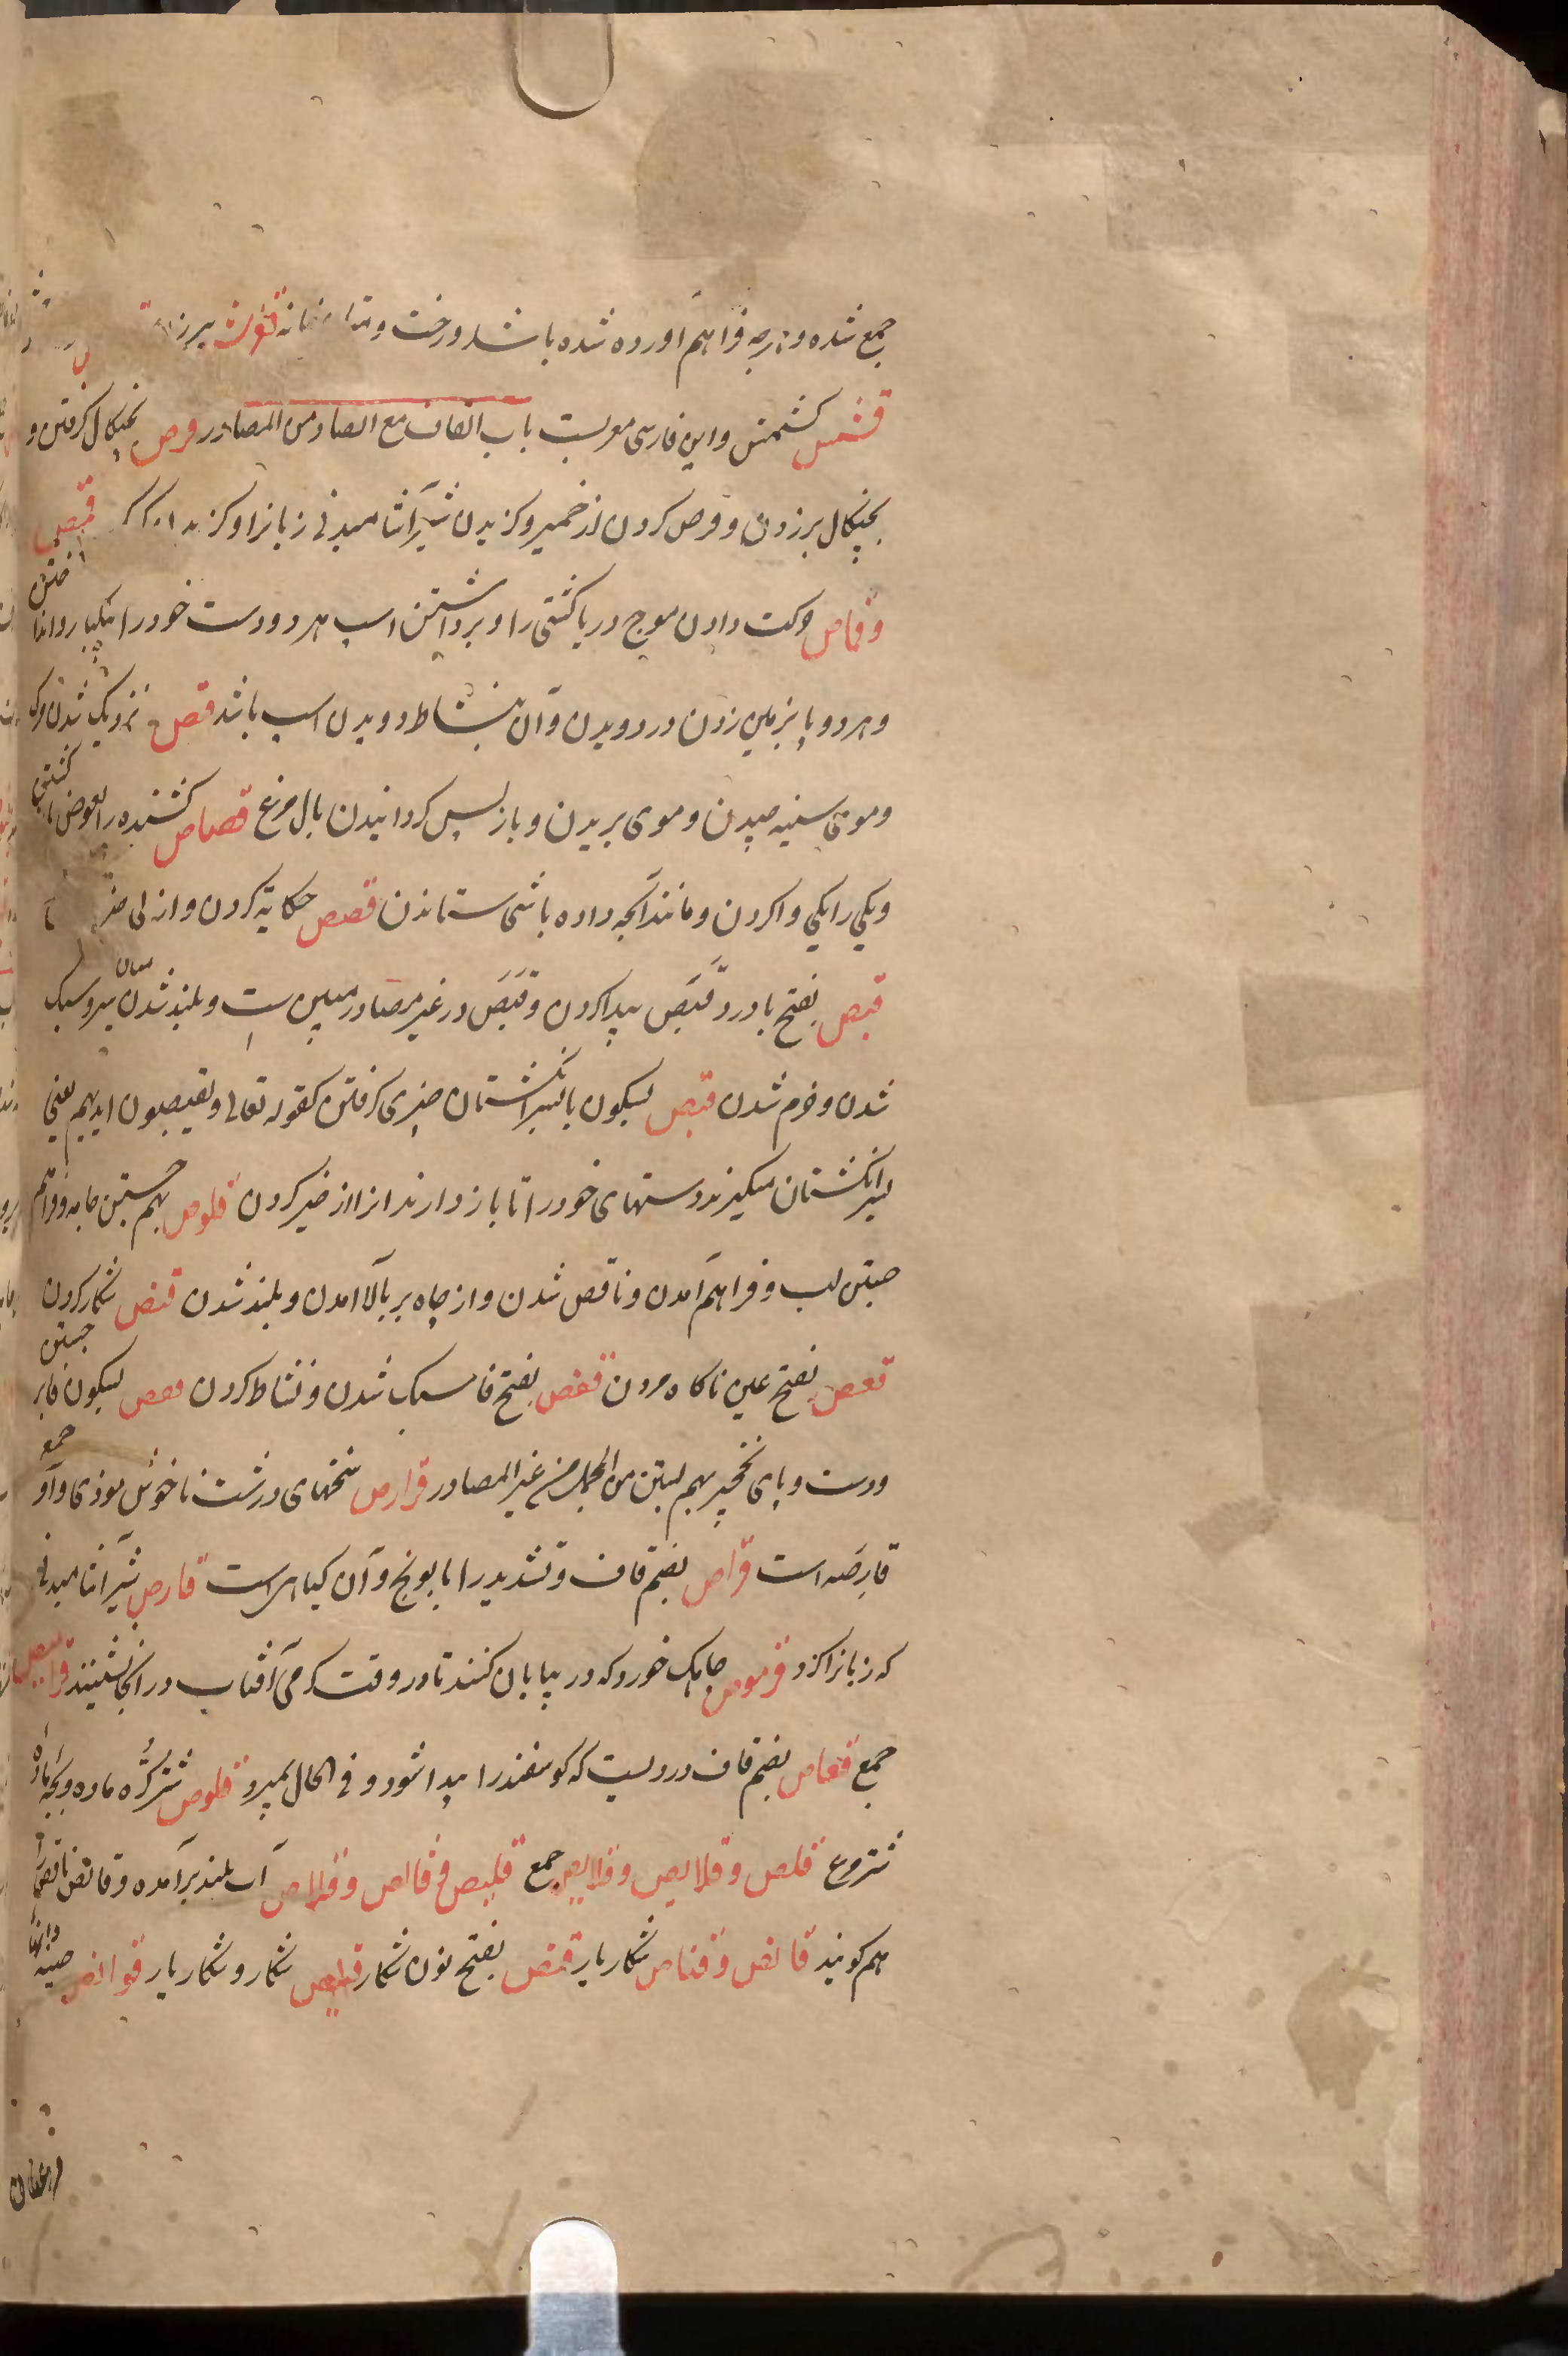 جمع شده و هرچه فراهم آورده شده باشد و رخت و متاع خانه
قشمش کشمش و این فارسی معربست باب القاف مع الصاد من المصادر قرص بچنکال کرفتن و
بچنکال برزدن و قرص کردن از خمیر و کزیدن شیر آشامیدنی زبانرا و کزیدن قمص
و قماص حرکت دادن موج دریا کشتی را و برداشتن اسپ هر دو دست خود را بیکبار و انداختن
و هر دو پا بزمین زدن در دویدن و آن بنشاط دویدن اسپ باشد قص نزدیک شدن مرک
و موی سینه چیدن و موی بریدن و بازپس کردانیدن بال مرغ قصاص کشنده را بعوض کشتن
و یکی را بیکی واکردن و مانند آنچه داده باشی ستاندن قصص حکایة کردن و از پی
قبص بفتح با درد قبص پیدا کردن و قبص در غیر مصادر مبین است و بلند شدن میان سر و سبک
شدن و خرم شدن قبص بسکون با بسر انکشتان چیزی کرفتن کقوله تعالی و یقبصون ایدیهم یعنی
بسر انکشتان میکیرند دستهای خود را تا باز دارند انرا از خیر کردن قلوص بهم جستن جامه و فراهم
جستن لب و فراهم آمدن و ناقص شدن و از چاه بر بالا امدن و بلند شدن قنص شکار کردن
قعص بفتح عین ناکاه مردن قفص بفتح فا سبک شدن و نشاط کردن قفص بسکون فا بر جستن
و دست و پای نخچیر بهم بستن من المجمل من غیر المصادر قوارص سخنهای درشت ناخوش موذی و او جمع
قارصه است قراص بضم قاف و تشدید را بابونج و آن کیاهی است قارص شیر آشامیدنی
که زبانرا کزد قرموص چاهک خورد که در بیابان کنند تا در وقت کرمی آفتاب در آنجا نشینند قرامیص
جمع قعاص بضم قاف دردیست که کوسفند را پیدا شود و فی الحال بمیرد قلوص شترکره ماده و بچه ماده
شترمرغ قلص و قلایص و قلایص جمع قلیص و قالص و قلاص آب بلند برآمده و قالص ناقص را
هم کویند قانص و قناص شکاریار قنص بفتح نون شکار قنیص شکار و شکاریار قوانص چینه دانها